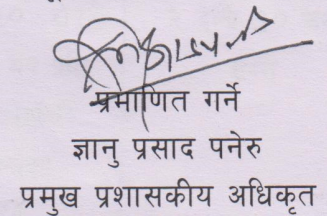 प्रमाणित गर्ने
ज्ञानु प्रसाद पनेरु
प्रमुख प्रशासकीय अधिकृत